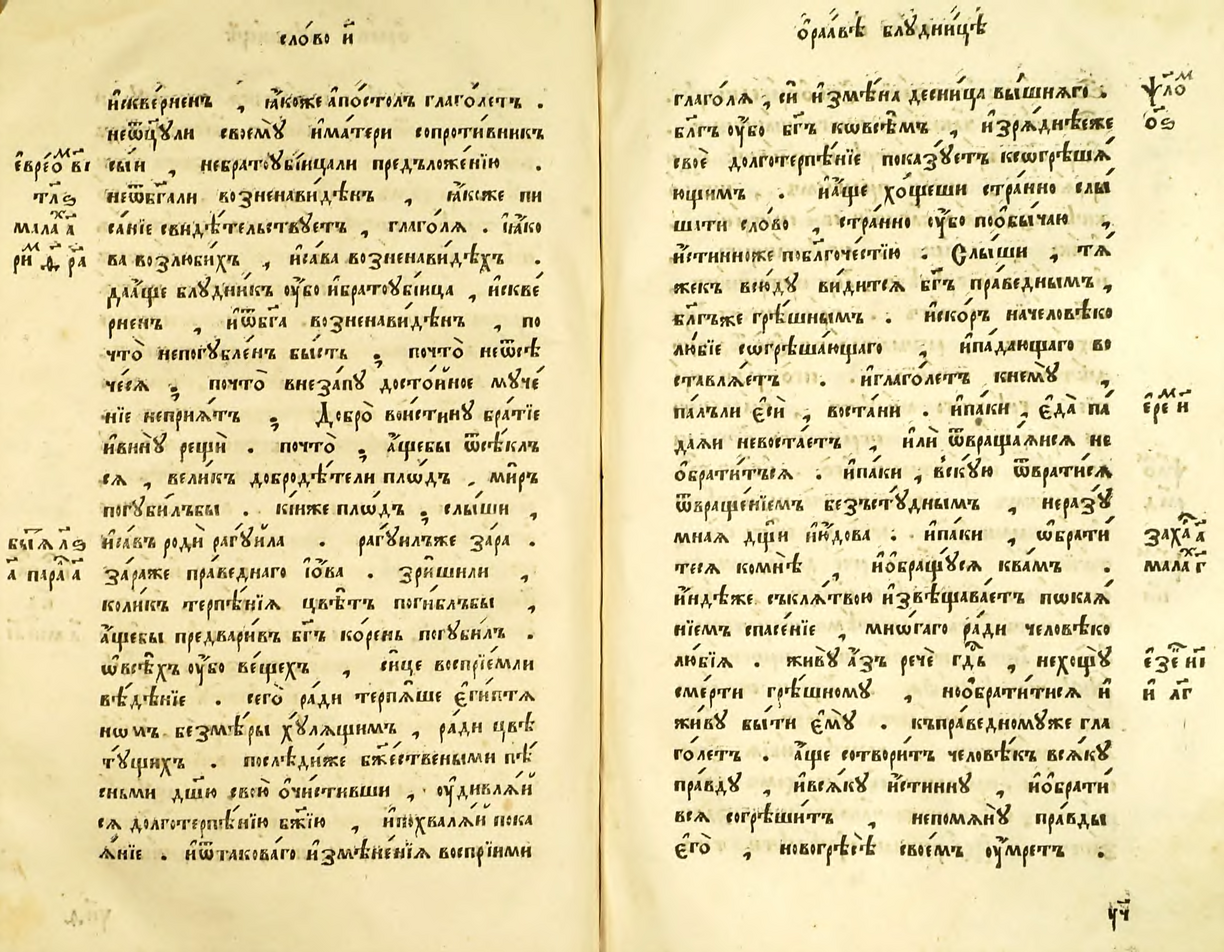 сло́во и҃
і҆скве́рненъ , ꙗ҆́коже а҆по́столъ глаго́летъ .
неѿц҃ули своемꙋ̀ и҆ма́тери сопроти́вникъ
є҆вре́ѡⷨ в҃і
сы́и , небратоꙋбі́ица́ли предъложе́нїю .
тл҃ѕ
неѿбг҃а́ли возненави́дѣнъ , ꙗ҆́коже пи
мала́хⷯ а҃
са́нїе свидѣ́тельствꙋетъ , глаго́лѧ . и҆ꙗ҆́ко
ри́ⷨ ѳ҃ р҃а
ва возлюби́хъ , и҆са́ва возненави́дѣхъ .
даа҆́ще блꙋдни́къ ᲂу҆́бо и҆братоꙋбі́ица , і҆скве́
рненъ , и҆ѿбг҃а возненави́дѣнъ , по
что̀ непогꙋбле́нъ бы́сть ; почто̀ неѿсѣ
че́сѧ ; почто̀ внеза́пꙋ досто́йное мꙋче́
нїе непрїѧ́тъ ; Добро̀ вои́стинꙋ бра́тїе
и҆винꙋ̀ рещѝ . почто̀ ; а҆́щебы ѿсѣ́клъ
сѧ , вели́къ доброде́тели пло́дъ , ми́ръ
погꙋби́лъбы . кі́иже пло́дъ ; слы́ши ,
бы́ѧ л҃ѕ
и҆са́въ родѝ рагꙋ́ила . рагꙋ́илъже за́ра .
а҃ пара́ а҃
за́раже пра́веднаго і҆́ѡва . зри́шили ,
коли́къ терпѣ́нїѧ цвѣ́тъ поги́блъбы ,
а҆́щебы предвари́въ бг҃ъ ко́рень погꙋби́лъ .
ѡ҆всѣ́хъ ᲂу҆́бо ве́щехъ , си́це воспрїе́мли
вѣ́дѣнїе . сего̀ ра́ди терпѧ́ше є҆ги́птѧ
нѡмъ безмѣ́ры хꙋ́лѧщимъ , ра́ди цвѣ
тꙋ́щихъ . послѣди́же бж҃е́ствеными пѣ́
сньми дш҃ю свою̀ ѡ҆чи́стивши , ᲂу҆дивлѧ́и
сѧ долготерпѣ́нїю бж҃їю , и҆похвалѧ́и пока
ѧ́нїе . и҆ѿтакова́го и҆змѣне́нїѧ воспрїими́
ѻ҆раа́вѣ блꙋдни́цѣ
глаго́лѧ , сїѝ и҆змѣ́на десни́ца вы́шнѧго .
ѱⷨло
бл҃гъ ᲂу҆́бо бг҃ъ ковсѣ́мъ , и҆зрѧ́днѣеже
ѻ҃ѕ
своѐ долготерпѣ́нїе показꙋ́етъ ксогрѣша́
ющимъ . и҆а҆́ще хо́щеши стра́нно слы́
шати сло́во , стра́нно ᲂу҆́бо поѻ҆бы́чаю ,
и҆́стинноже побл҃гоче́стїю : Слы́ши , тѧ́
жекъ всю́дꙋ ви́дитсѧ бг҃ъ пра́веднымъ ,
бл҃гъже грѣ́шнымъ . и҆ско́ръ начеловѣко
лю́бїе согрѣша́ющаго , и҆па́дающаго во
ставлѧ́етъ . и҆глаго́летъ кнемꙋ̀ ,
па́лъли є҆сѝ , воста́ни . и҆па́ки , є҆да̀ па́
є҆реⷨ и҃
даѧи невоста́етъ , и҆лѝ ѿвраща́ѧисѧ не
ѻ҆брати́тъсѧ . и҆па́ки , вскꙋ́ю ѿврати́сѧ
ѿвраще́нїемъ безъстꙋ́днымъ , неразꙋ́
мнаѧ дщѝ и҆ю́дова : и҆па́ки , ѡ҆брати́
заха́ а҃
тесѧ комнѣ̀ , и҆ѻ҆бращꙋ́сѧ ква́мъ .
мала́ⷯ г҃
и҆́ндѣже съклѧ́твою и҆звѣщава́етъ пѡкаѧ́
нїемъ спасе́нїе , мнѡ́гаго ра́ди человѣко
лю́бїѧ . живꙋ̀ а҆́зъ речѐ гд҃ь , нехощꙋ̀
є҆зе н҃і
сме́рти грѣ́шномꙋ , ноѻ҆брати́тисѧ и҆
и҆ л҃г
жи́вꙋ бы́ти є҆мꙋ̀ . къпра́ведномꙋже гла
го́летъ . а҆́ще сотвори́тъ человѣ́къ всѧ́кꙋ
пра́вдꙋ , и҆всѧ́кꙋ и҆́стиннꙋ , и҆ѻ҆брати́
всѧ согрѣши́тъ , непомѧнꙋ̀ пра́вды
є҆гѡ̀ , новогрѣсѣ̀ свое́мъ ᲂу҆́мретъ .
ѱч҃